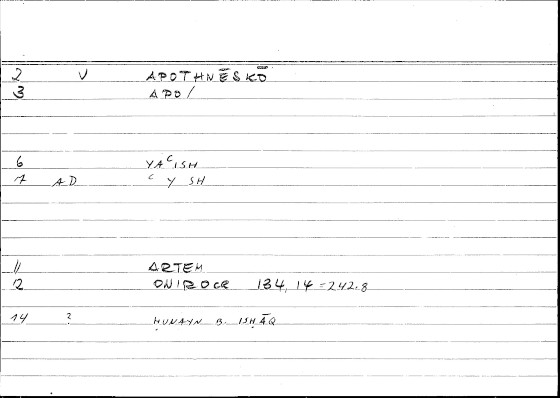 2 V APOTHNĒSKŌ
3 APO/
6 YAᶜISH
7 AD ᶜ Y SH
11 ARTEM
12 ONIROCR 134, 14 = 242.8
14 ? ḤUNAYN B. ISḤĀQ